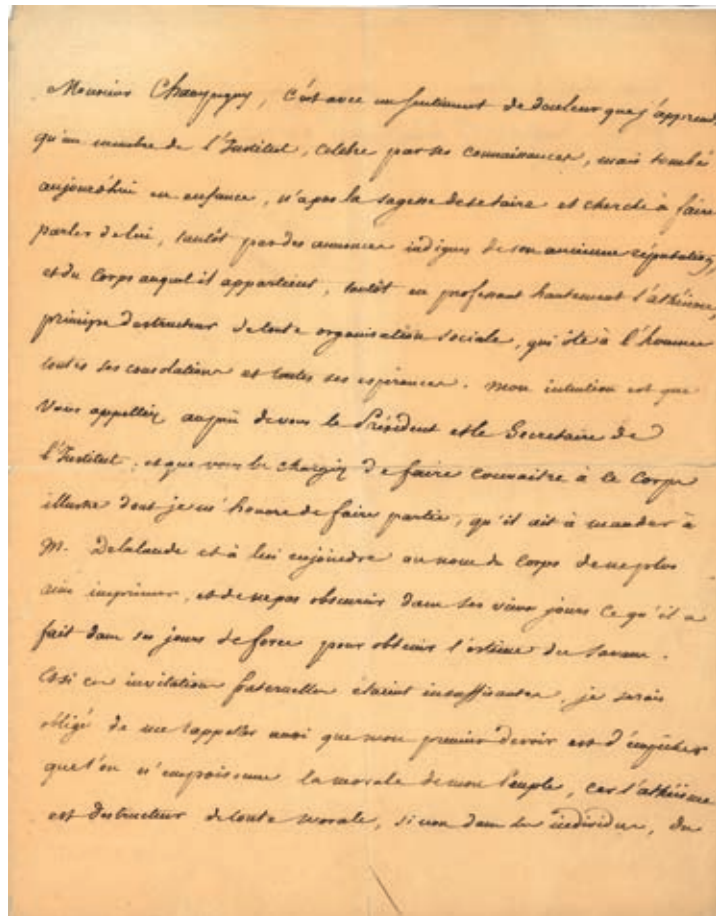 Monsieur Champagny, c'est avec un sentiment de douleur que j'apprends
qu'un membre de l'Institut, célèbre par ses connaissances, mais tombé
aujourd'hui en enfance, n'a pas la sagesse de se taire et cherche à faire
parler de lui, tantôt par des annonces indignes de son ancienne réputation,
et du Corps auquel il appartient, tantôt en professant hautement l'athéisme,
principe destructeur de toute organisation sociale, qui ôte à l'homme
toutes ses consolations et toutes ses espérances. Mon intention est que
Vous appelliez auprès de vous le Président et le Secrétaire de
l'Institut, et que vous les chargiez de faire connaître à ce Corps
illustre dont je m'honore de faire partie, qu'il ait à mander à
M. Delalande et à lui enjoindre au nom du Corps de ne plus
rien imprimer, et de ne pas obscurcir dans ses vieux jours ce qu'il a
fait dans ses jours de force pour obtenir l'estime des Savans.
Et si ces invitations fraternelles étaient insuffisantes, je serais
obligé de me rappeller aussi que mon premier devoir est d'empêcher
que l'on n'empoisonne la morale de mon Peuple, car l'athéisme
est destructeur de toute morale, si non dans les individus, du